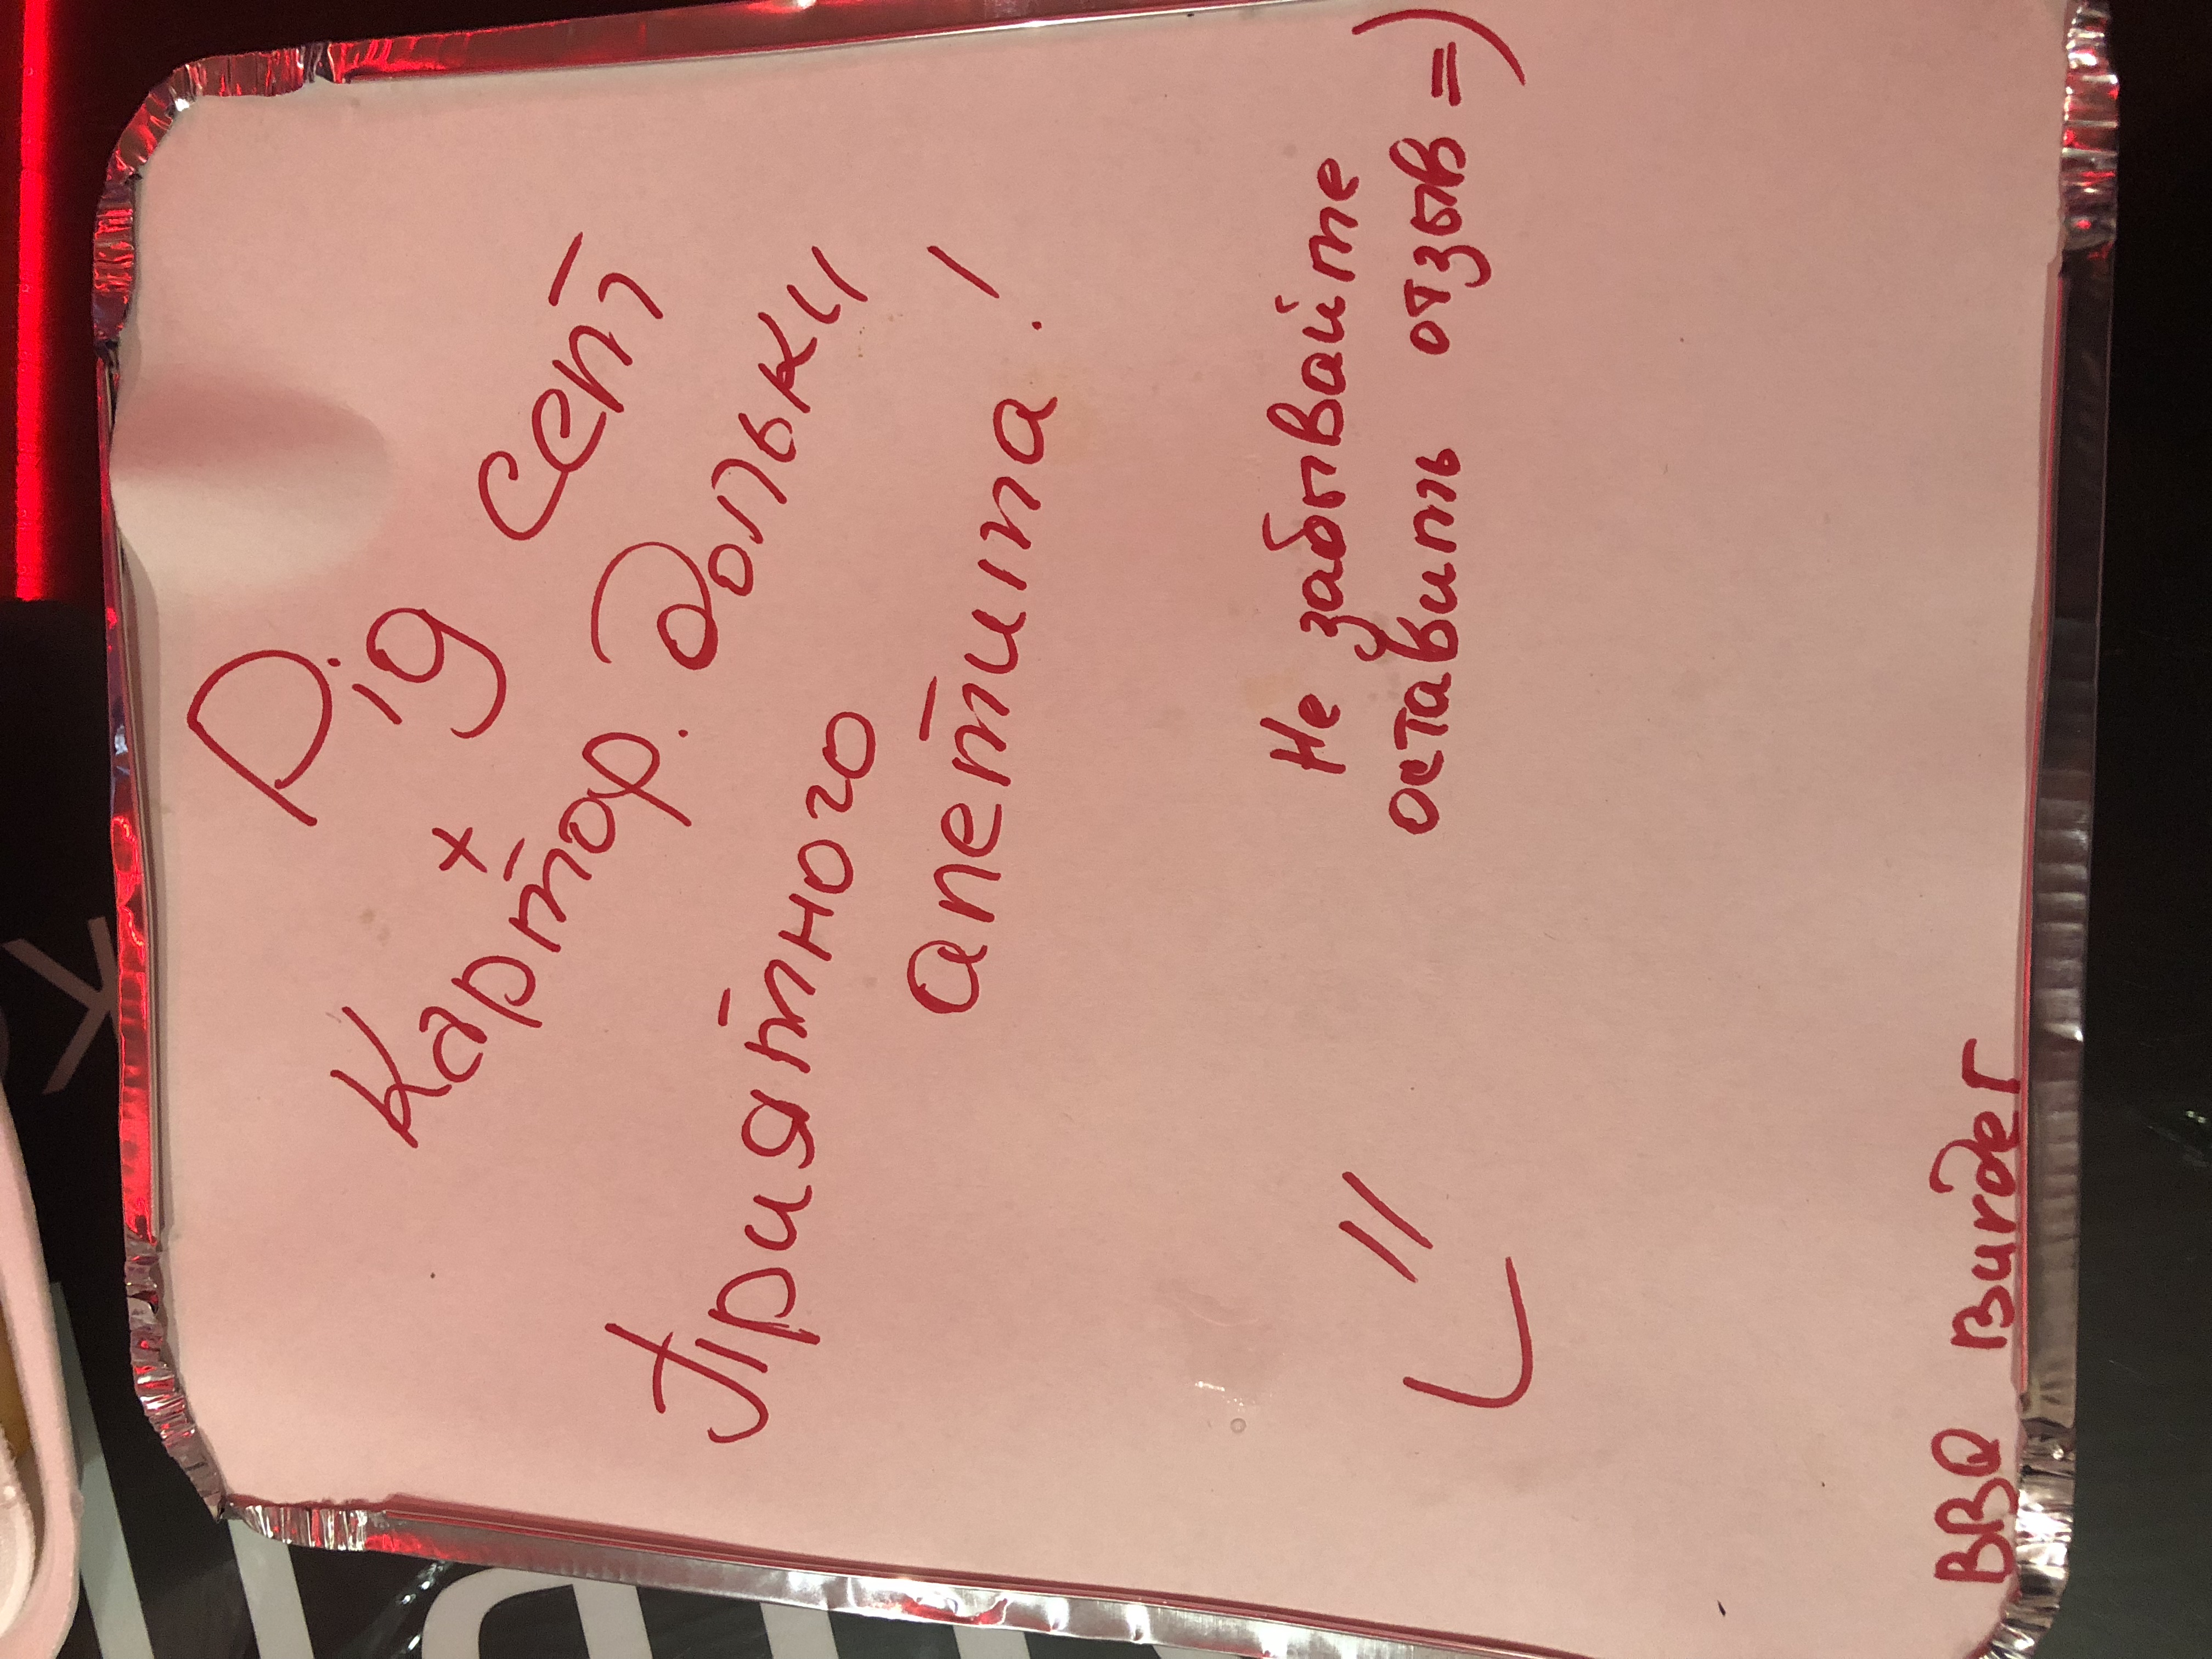 Pig сет
+
Картоф. дольки
Приятного
апетита!
Не забывайте
оставить отзыв =)
BBQ Burger